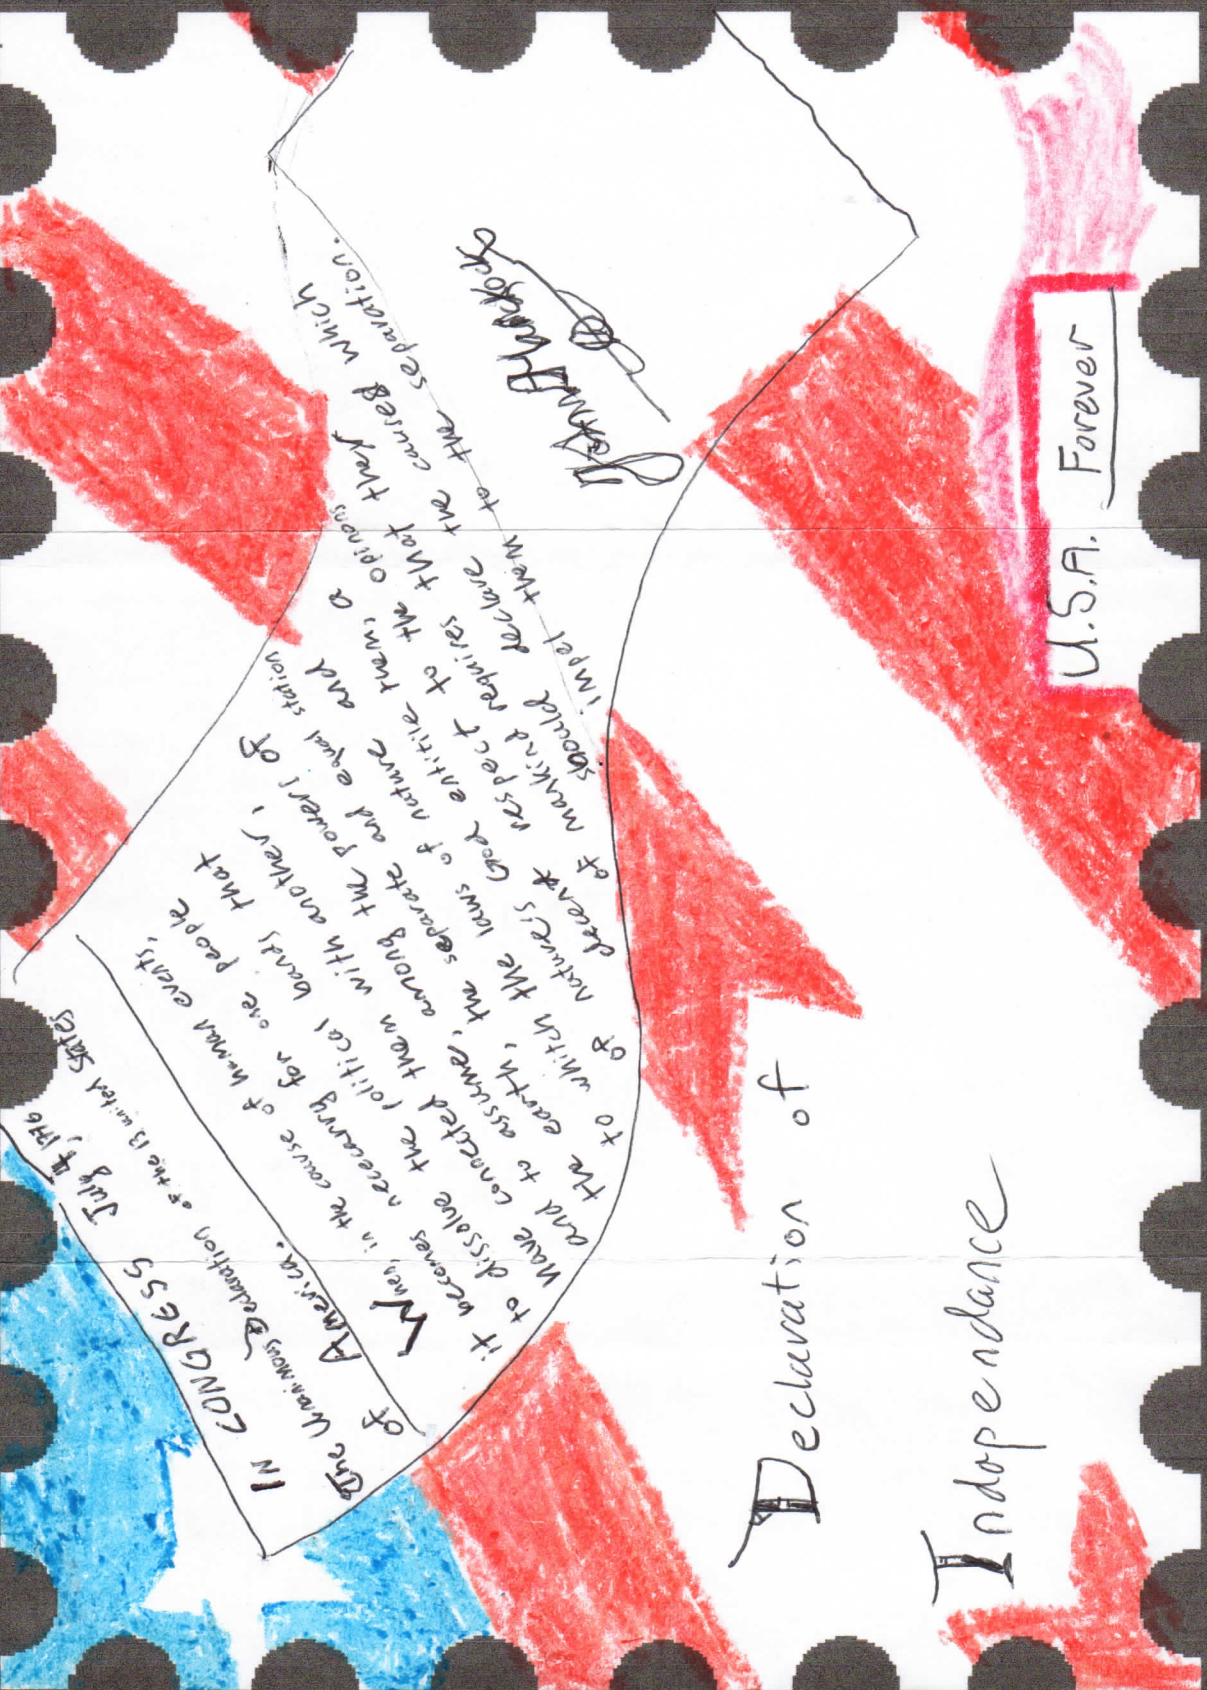 IN CONGRESS July 4, 1776
The Unanimous Declaration of the 13 united States
of America.
When, in the course of human events,
it becomes neccarry for one people
to dissolve the political bands that
have conected them with another,
and to assume, among the powers of
the earth, the separate and equal station
to whitch the laws of nature and
of nature's God entitile them, a
decent respect to the opinons
of mankind requires that they
should declare the caused which
impel them to the separation.
John Hancock
Declaration of
Indopendance
U.S.A. Forever